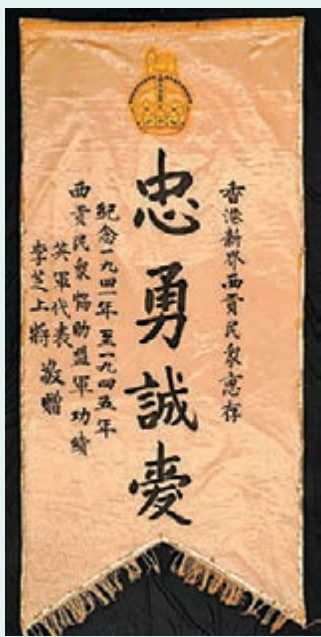 香港新界西貢民眾惠存
忠勇誠愛
紀念一九四一年至一九四五年
西貢民眾協助盟軍功績
英軍代表
李芝上將 敬贈